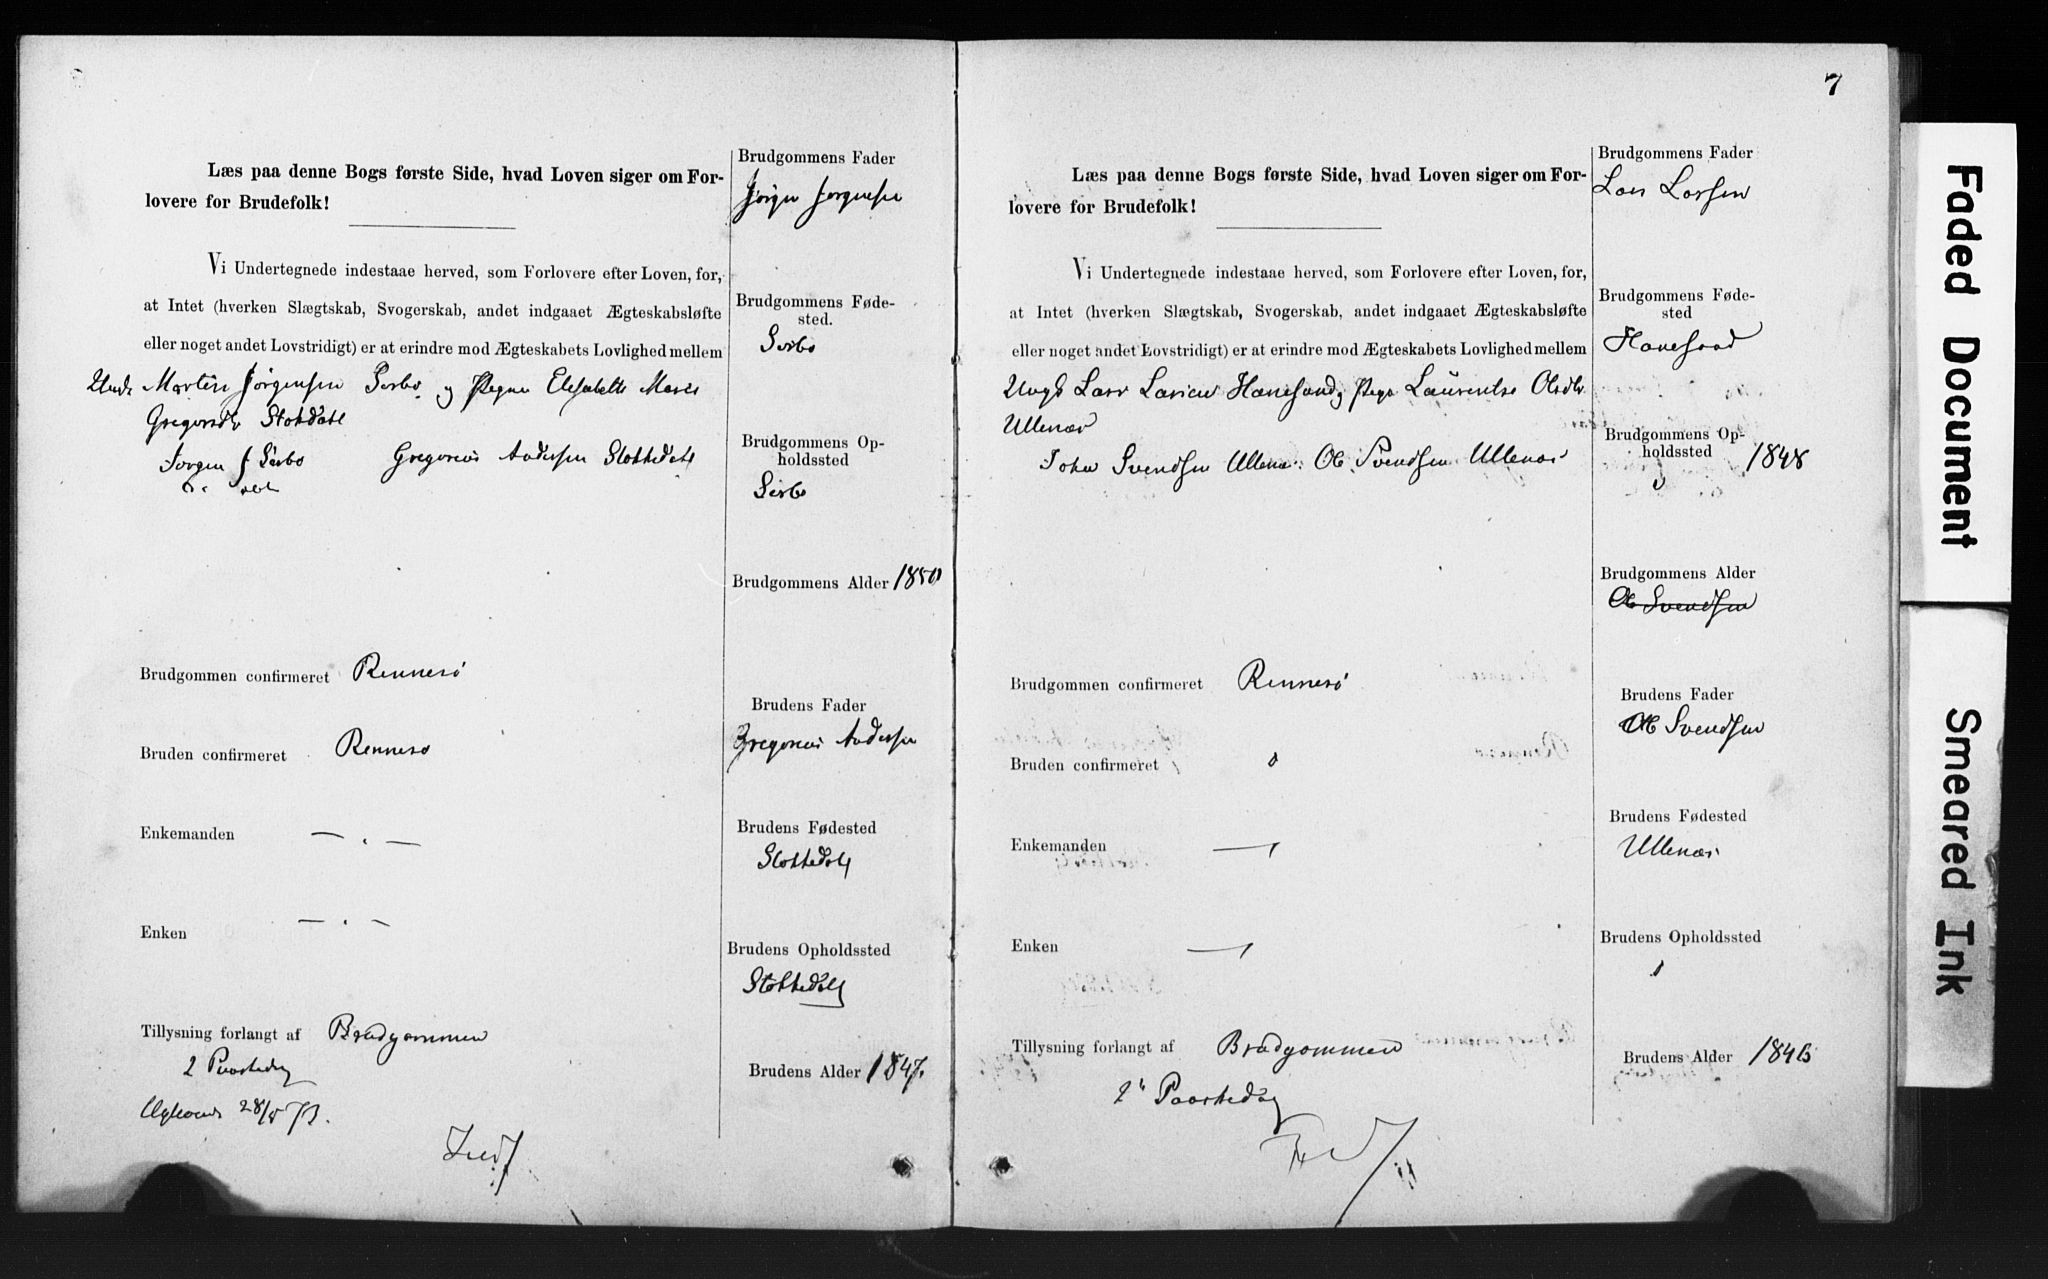 Læs paa denne Bogs første Side, hvad Loven siger om For-
lovere for Brudefolk!
Vi Undertegnede indestaae herved, som Forlovere efter Loven, for,
at Intet (hverken Slægtskab, Svogerskab, andet indgaaet Ægteskabsløfte
eller noget andet Lovstridigt) er at erindre mod Ægteskabets Lovlighed mellem
Martin Jørgensen Sørbø og Pigen Elisabeth
Stokdal
Jørgen J Sørbø Gregorius Andersen
Brudgommen confirmeret Rennesø
Bruden confirmeret Rennesø
Enkemanden — . —
Enken — . —
Tillysning forlangt af Brudgommen
2 Paaskedag
28/5 73.
Brudgommens Fader
Jørgen Jørgensen
Brudgommens Føde-
sted.
Sørbø
Brudgommens Op-
holdssted
Sørbø
Brudgommens Alder 1850
Brudens Fader
Gregorius Andersen
Brudens Fødested
Slottedal
Brudens Opholdssted
Brudens Alder 1847.
7
Læs paa denne Bogs første Side, hvad Loven siger om For-
lovere for Brudefolk!
Vi Undertegnede indestaae herved, som Forlovere efter Loven, for,
at Intet (hverken Slægtskab, Svogerskab, andet indgaaet Ægteskabsløfte
eller noget andet Lovstridigt) er at erindre mod Ægteskabets Lovlighed mellem
Ungk Lars Larsen Hanesand og Pige Laurentse Olsdtr
Ullenæs
John Svendsen Ullenæs Ole Svendsen Ullenæs
Brudgommen confirmeret Rennesø
Bruden confirmeret
Enkemanden —
Enken —
Tillysning forlangt af Brudgommen
2 Paaskedag
Brudgommens Fader
Lars Larsen
Brudgommens Føde-
sted
Hanesand
Brudgommens Op-
holdssted 1848
Brudgommens Alder
Ole Svendsen
Brudens Fader
Ole Svendsen
Brudens Fødested
Ullenæs
Brudens Opholdssted
Brudens Alder 1846
Faded Document
Smeared Ink